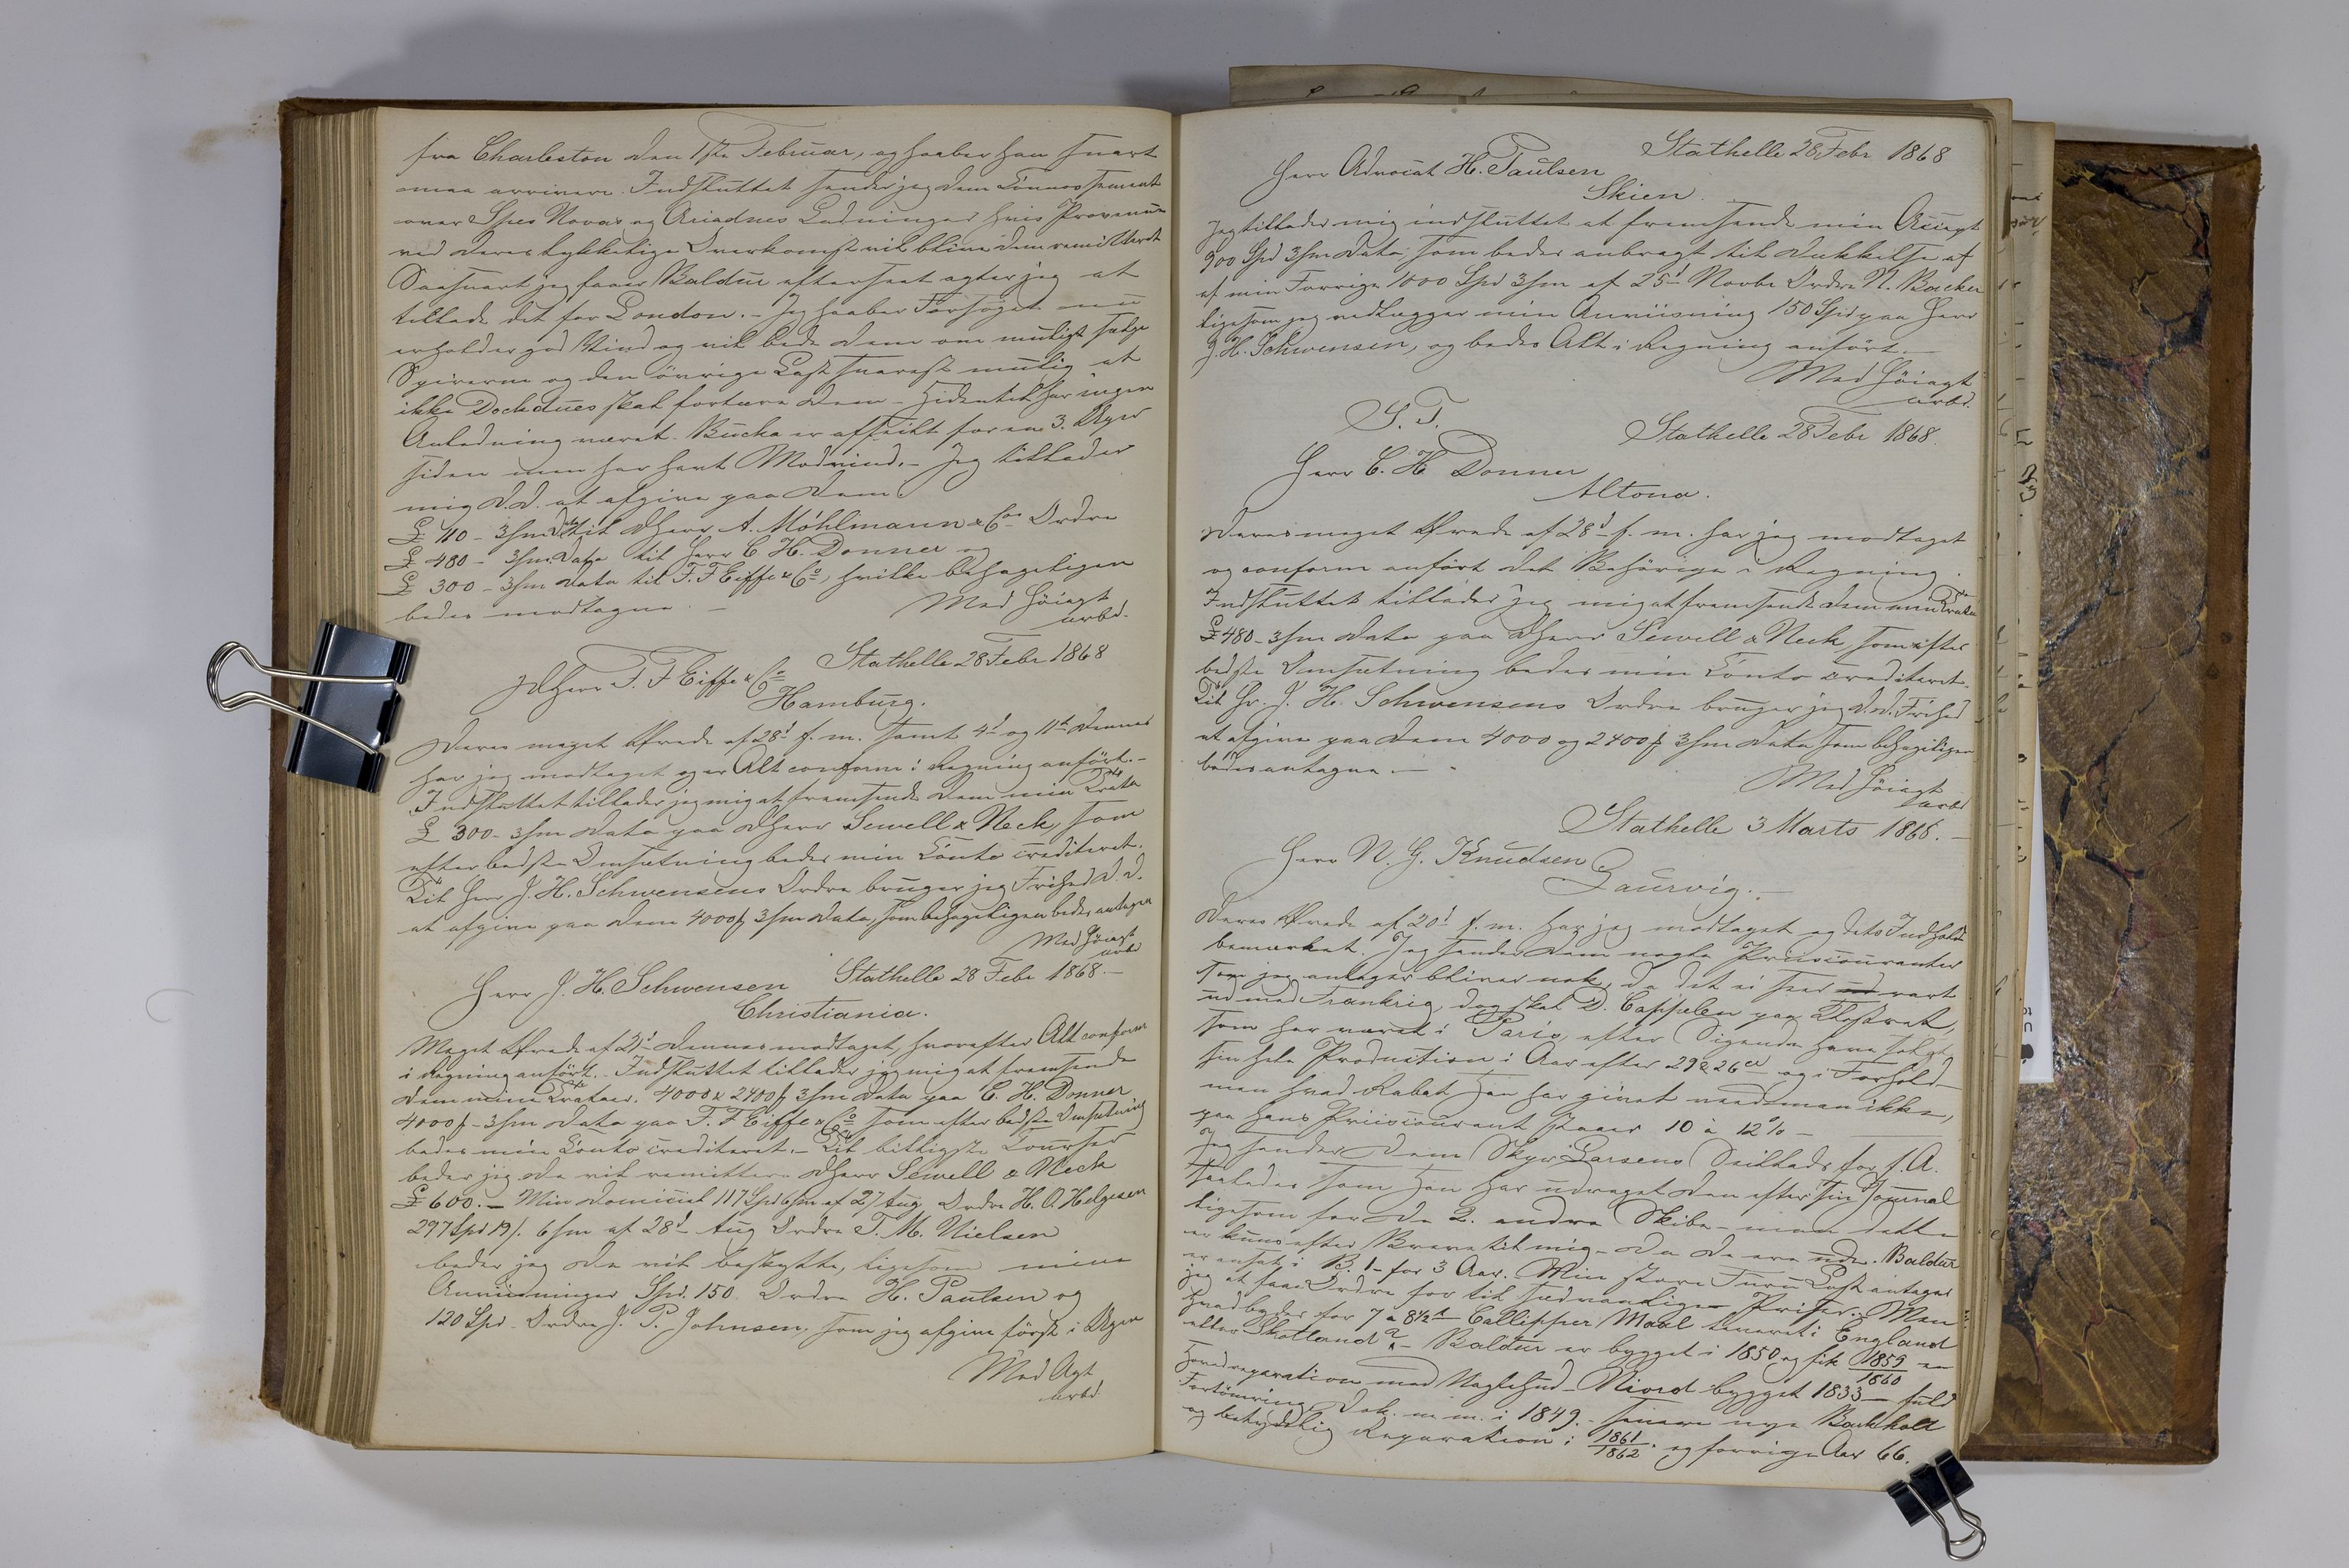 fra Charleston den 1ste Februar, og haaber han snart
maa arrivere. Indsluttet sender jeg Dem Connossement
over Spes Novas og Ariadnes Ladninger hvis Provenue
ved deres lykkelige Overkomst vil blive Dem remitteret
Saasnart jeg faaer Baldur efterseet agter jeg at
tillade det for London. - Jeg haaber Forsøget nu
erholder god Vind og vil bede Dem om muligt sælge
Spirerne og den øvrige Last snarest mulig at
ikke Dockdues skal fortære dem - Hidentil har ingen
Anledning været. Bucka er afseilt for en 3. Uger
siden men har havt Modvind. - Jeg tillader
mig D.D. at afgive paa Dem
£ 110 - 3/m Dato til DHerr A. Möhlmann & Co Ordre
£ 480 - 3/m Dato til Herr C. H. Donner og
£ 300 - 3/m Dato til F. F Eiffe & Co, hvilke behageligen
bedes modtagne. -
Med Høiagt
ærbd.
Stathelle 28 Febr 1868
DHerr F. F Eiffe & Co
Hamburg.
Deres meget Ærede af 28d f. m. samt 4d og 11te dennes
har jeg modtaget og er Alt conform i Regning anført. -
Indsluttet tillader jeg mig at fremsende Dem min Tratte
£ 300 - 3/m Dato paa DHerr Sewell & Neck, som
efter bedste Omsætning bedes min Conto crediteret.
Til Herr J. H. Schwensens Ordre bruger jeg Frihed D. D.
at afgive paa Dem 4000 3/m Dato, som behageligen bedes antagen
Med Høiagt
ærbd
Stathelle 28 Febr 1868. -
Herr J. H. Schwensen
Christiania.
Meget Ærede af 21d dennes modtaget, hvorefter Alt conform
i Regning anført. - Indsluttet tillader jeg mig at fremsende
Dem mine Tratter. 4000 & 2400 3/m Dato paa C. H. Donner
4000 - 3/m Dato paa F. F Eiffe & Co som efter bedste Omsætning
bedes min Conto crediteret. - Til billigste Courser
beder jeg De vil remittere DHerr Sewell & Neck
£ 600. - Min Domicil 117 Spd 6/m af 27 Aug Ordre H. O. Helgesen
297 Spd 19/. 6/m af 28d Aug Ordre T. M. Nielsen
beder jeg De vil beskytte, ligesom mine
Anviisninger Spd. 150. Ordre H. Paulsen og
120 Spd - Ordre J. P. Johnsen. som jeg afgive først i Ugen
Med Agt
ærbd.
Stathelle 28 Febr 1868
Herr Advocat H. Paulsen
Skien.
Jeg tillader mig indsluttet at fremsende min Accept
900 Spd 3/m Dato som bedes anbragt til Dækkelse af
af min Forrige 1000 Spd 3/m af 25d Novbr Ordre N. Backer
ligesom jeg vedlægger min Anviisning 150 Spd paa Herr
J. H. Schwensen, og bedes Alt i Regning anført. -
Med Høiagt
ærbd.
S. T.
Stathelle 28 Febr 1868.
Herr C. H Donner
Altona.
Deres meget Ærede af 28d f. m. har jeg modtaget
og conform anført det Behørige i Regning.
Indsluttet tillader jeg mig at fremsende Dem min Tratte
£ 480 - 3/m Dato paa DHerr Sewell & Neck, som efter
bedste Omsætning bedes min Conto crediteret.
Til Hr. J. H. Schwensens Ordre bruger jeg D. D. Frihed
at afgive paa Dem 4000 og 2400 3/m Dato som behageligen
bedes antagne. -
Med Høiagt
ærbd
Stathelle 3 Marts 1868. -
Herr N. G. Knudsen
Laurvig. -
Deres Ærede af 20d f. m. har jeg modtaget og dets Indhold
bemærket. Jeg sender Dem nogle Priiscouranter
som jeg antager bliver nok, da det ei seer ud vart
ud med Frankrig, dog skal D. Cappelen paa Klosteret,
som har været i Paris, efter Sigende have solgt
sin hele Production i Aar efter 29 & 26 og i Forhold
men hvad Rabat Han har givet veed man ikke,
paa Hans Priiscourant staaer 10 à 12 % -
Jeg sender Dem Skpr Larsens Seillads for f. A.
saaledes som Han har udraget den efter sin Journal
ligesom for de 2. andre Skibe - men dette
er kuns efter Brevene til mig - da De ere ude. Baldur
er ansat i B. 1 - for 3 Aar. Min store Furu Last antager
jeg at faae Ordre for til sædvanlige Priser. Men
hvad bydes for 7 a 8 1/2 Callipper Maal leveret i England
eller Skotland? - Baldur er bygget i 1850 og fik 1859/1860 en
Hovedreparation med Naglehud - Niord bygget 1833 - fuld
Fortømring, Dek. m m. i 1849. - senere nye Bachholt
og betydelig Reparation i 1861/1862. og forrige Aar 66.